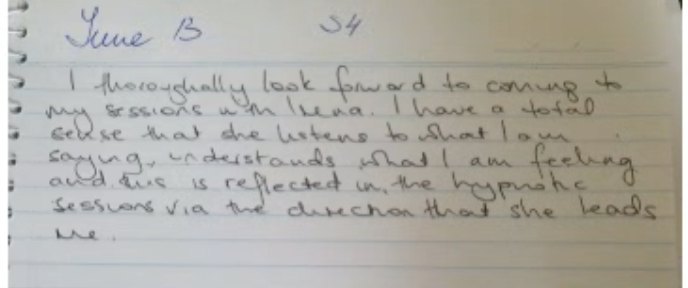 June B 54
I thoroughally look forward to coming to
my sessions with Irena. I have a total
sense that she listens to what I am
saying, understands what I am feeling
and this is reflected in the hypnotic
sessions via the direction that she leads
me.